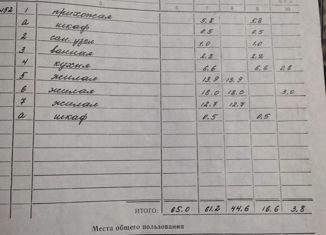 152 1 прихожая 5.8 5.8
а шкаф 0.5 0.5
2 сан. узел 1.0 1.0
3 ванная 2.2 2.2
4 кухня 6.6 6.6 0.8
5 жилая 13.9 13.9
6 жилая 18.0 18.0 3.0
7 жилая 12.7 12.7
а шкаф 0.5 0.5
ИТОГО: 65.0 61.2 44.6 16.6 3.8
Места общего пользования